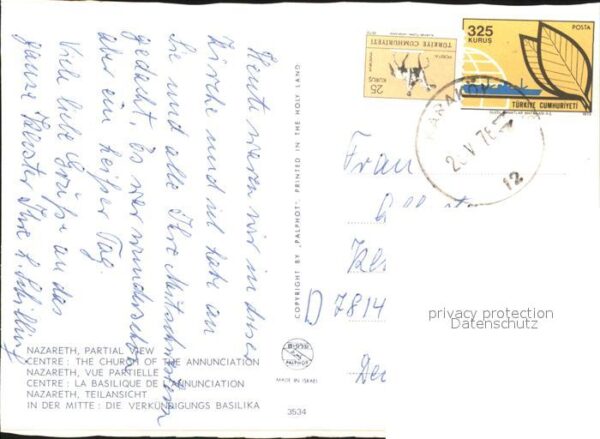 Heute waren wir in dieser
Kirche und ich habe an
Sie und alle Ihre Mitschwestern
gedacht, es war wunderschön
aber ein heißer Tag.
Viele liebe Grüße an das
ganze Kloster Ihre L. Schilling
NAZARETH, PARTIAL VIEW
CENTRE : THE CHURCH OF THE ANNUNCIATION
NAZARETH, VUE PARTIELLE
CENTRE : LA BASILIQUE DE L'ANNUNCIATION
NAZARETH, TEILANSICHT
IN DER MITTE : DIE VERKÜNDIGUNGS BASILIKA
3534
COPYRIGHT BY "PALPHOT", PRINTED IN THE HOLY LAND
PALPHOT
MADE IN ISRAEL
25
KURUŞ
POSTA
TÜRKİYE CUMHURİYETİ
325
KURUŞ
POSTA
TÜRKİYE CUMHURİYETİ
KARAKÖY
V 76
12
Frau
D 7814
privacy protection
Datenschutz